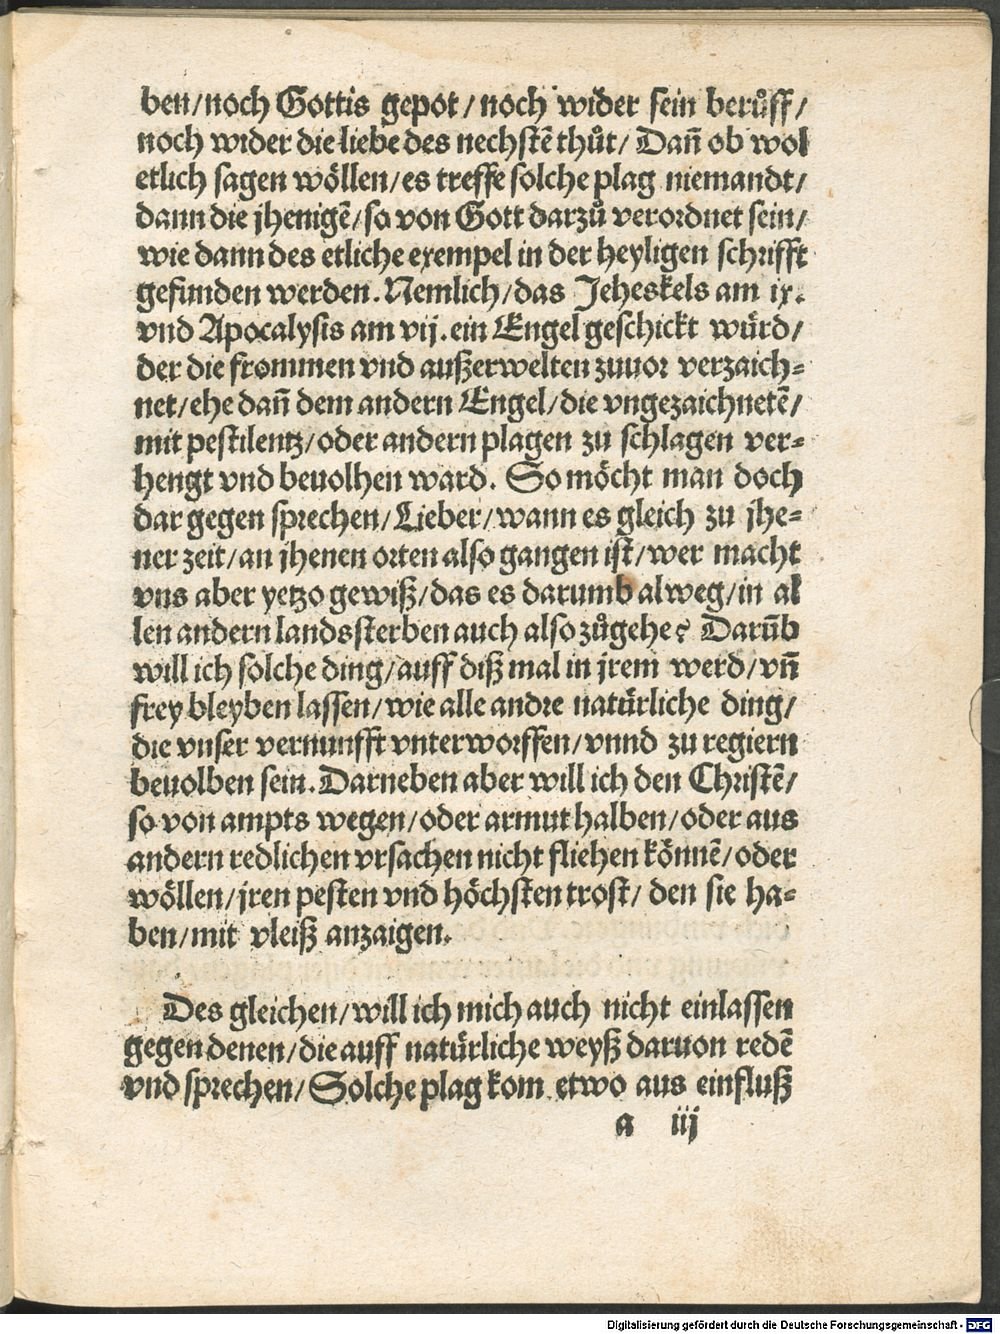 ben/noch Gottis gepot/noch wider sein berůff/
noch wider die liebe des nechstē thůt/ Dañ ob wol
etlich sagen wöllen/es treffe solche plag niemandt/
dann die jhenigē/so von Gott darzů verordnet sein/
wie dann des etliche exempel in der heyligen schrifft
gefunden werden. Nemlich/das Jeheskels am ix.
vnd Apocalysis am vij. ein Engel geschickt würd/
der die frommen vnd außerwelten zuuor verzaich⸗
net/ehe dañ dem andern Engel/die vngezaichnetē/
mit pestilentz/oder andern plagen zu schlagen ver⸗
hengt vnd beuolhen ward. So möcht man doch
dar gegen sprechen/Lieber/wann es gleich zu jhe⸗
ner zeit/an jhenen orten also gangen ist/wer macht
vns aber yetzo gewiß/das es darumb alweg/in al
len andern landssterben auch also zůgehe? Darūb
will ich solche ding/auff diß mal in jrem werd/vñ
frey bleyben lassen/wie alle andre natürliche ding/
die vnser vernunfft vnterworffen/vnnd zu regiern
beuolben sein. Darneben aber will ich den Christē/
so von ampts wegen/oder armut halben/oder aus
andern redlichen vrsachen nicht fliehen könnē/oder
wöllen/jren pesten vnd höchsten trost/ den sie ha⸗
ben/mit vleiß anzaigen.
Des gleichen/will ich mich auch nicht einlassen
gegen denen/die auff natürliche weyß daruon redē
vnd sprechen/Solche plag kom etwo aus einfluß
a iij
Digitalisierung gefördert durch die Deutsche Forschungsgemeinschaft - DFG